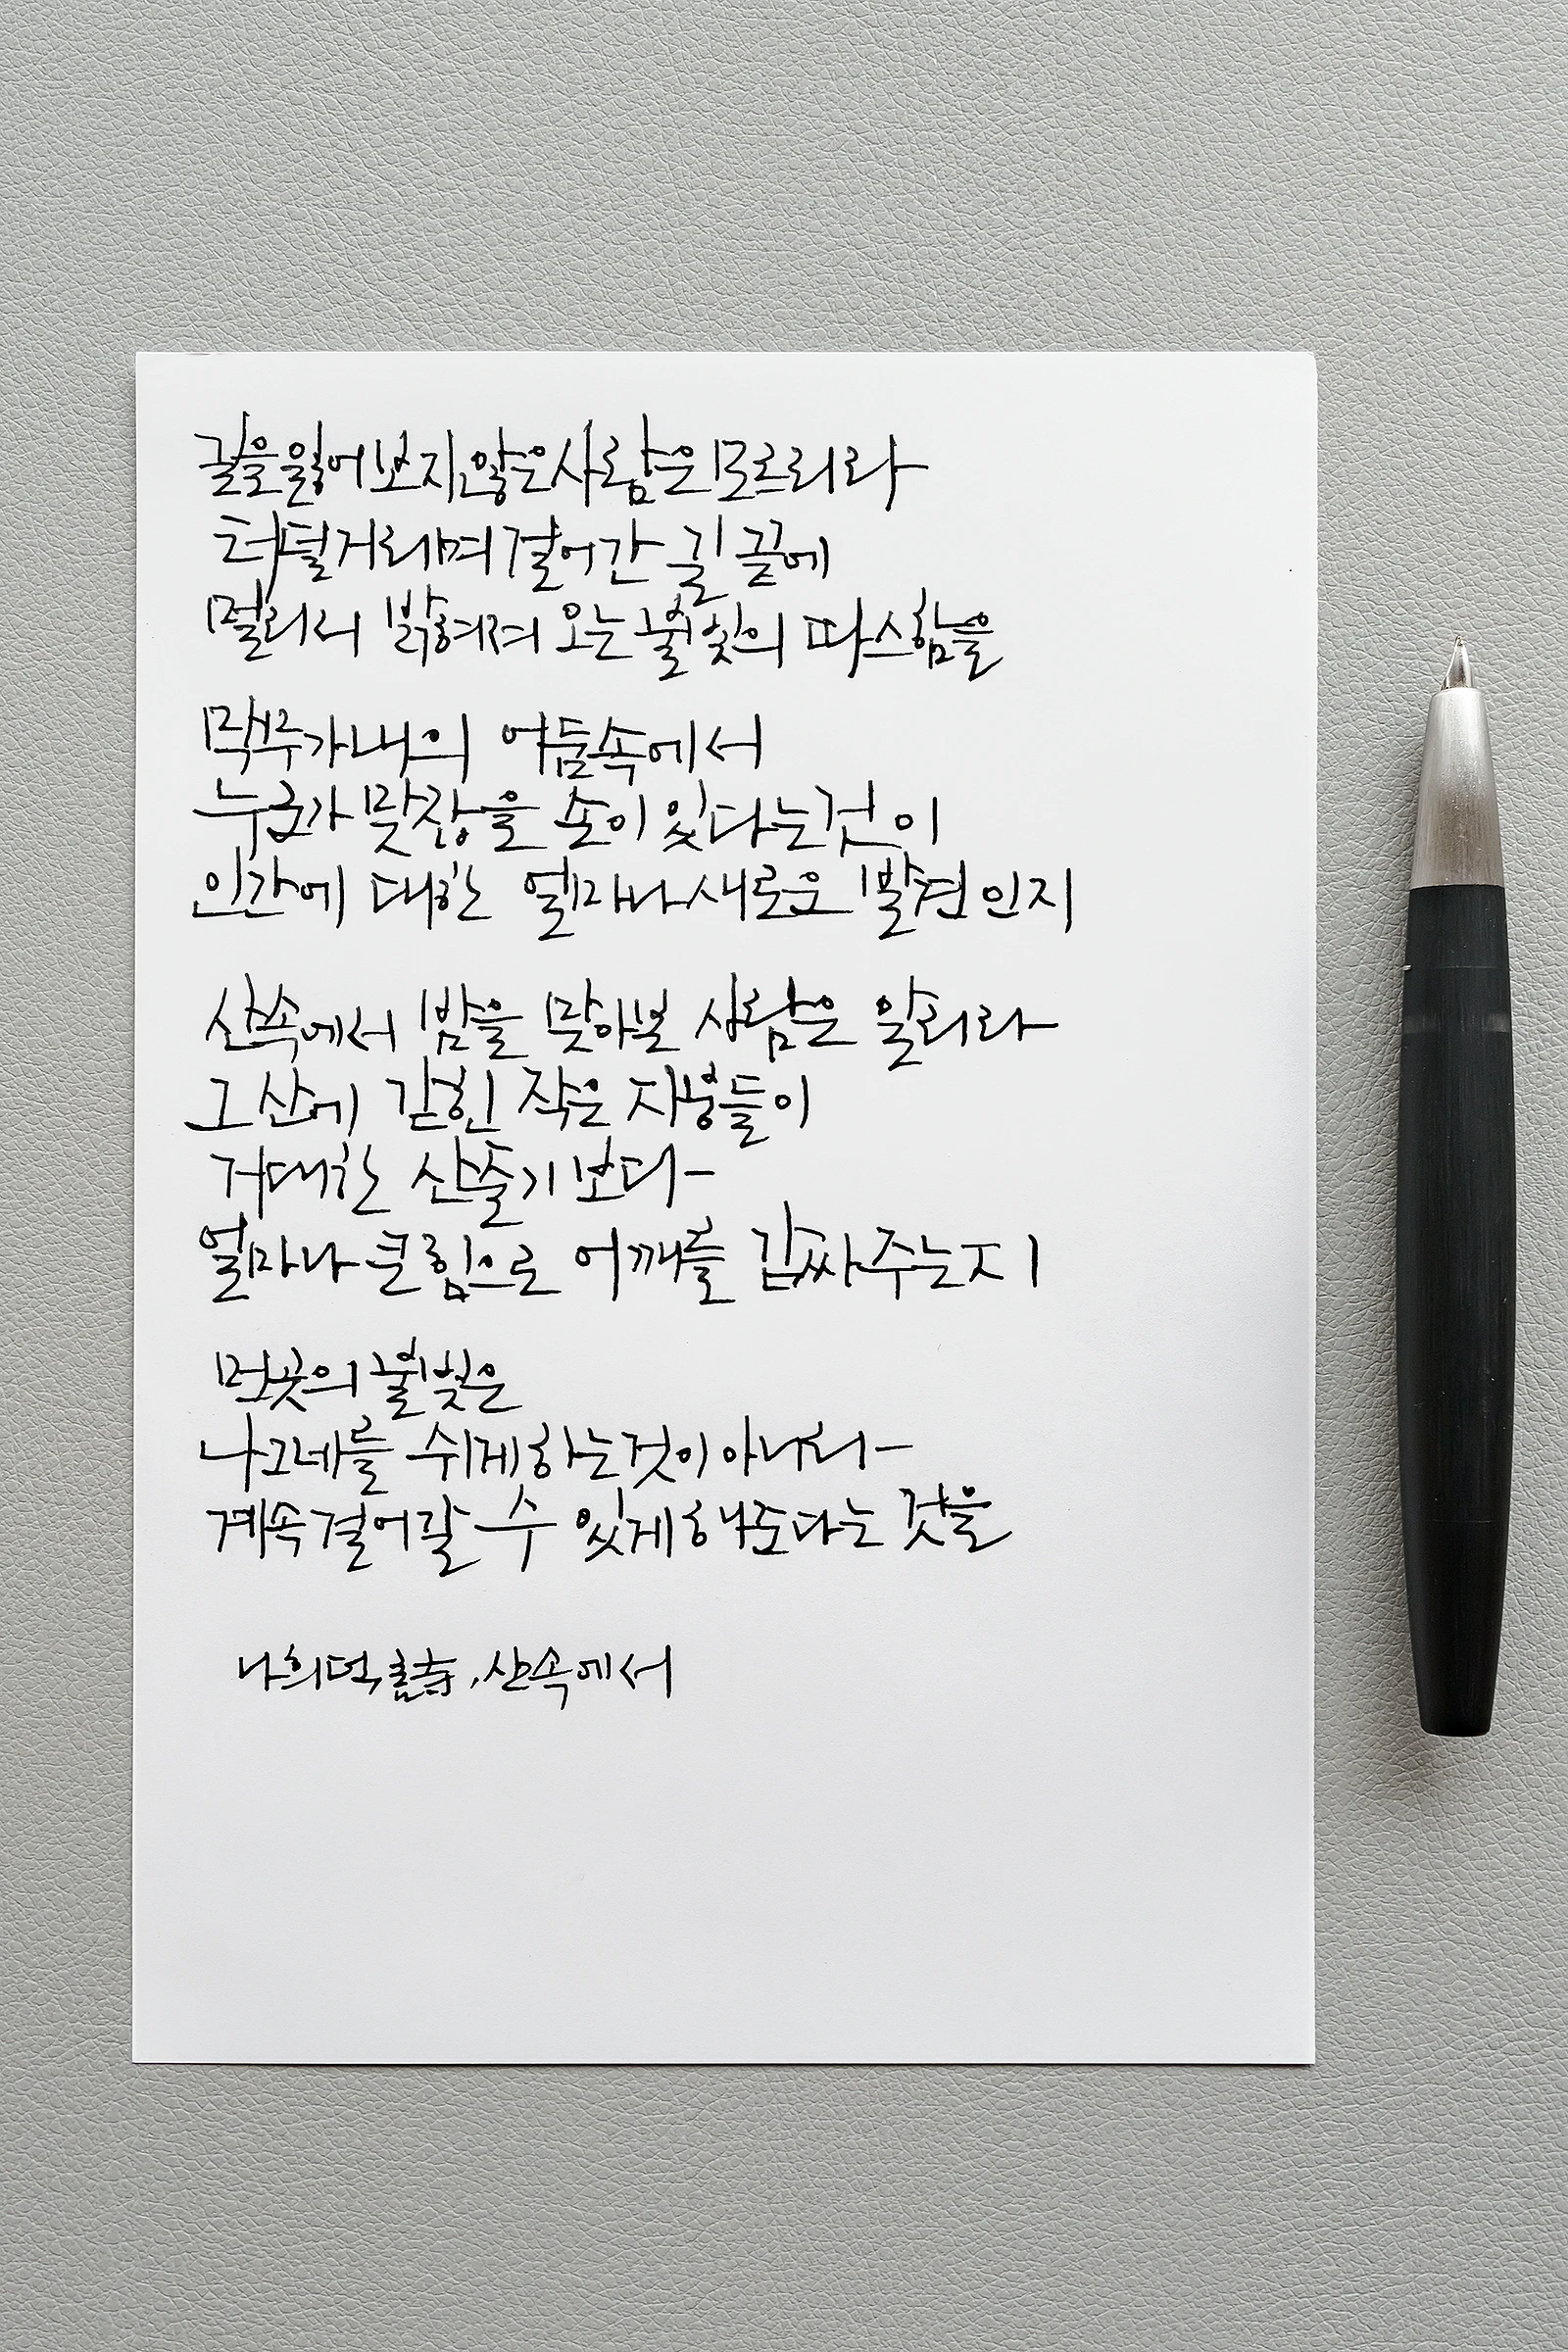 길을 잃어 보지 않은 사람은 모르리라
터덜거리며 걸어간 길 끝에
멀리서 밝혀져 오는 불빛의 따스함을
막무가내의 어둠 속에서
누군가 맞잡을 손이 있다는 것이
인간에 대한 얼마나 새로운 발견인지
산속에서 밤을 맞아본 사람은 알리라
그 산에 갇힌 작은 지붕들이
거대한 산줄기보다
얼마나 큰 힘으로 어깨를 감싸주는지
먼 곳의 불빛은
나그네를 쉬게 하는 것이 아니라
계속 걸어갈 수 있게 해준다는 것을
나희덕, 詩, 산속에서